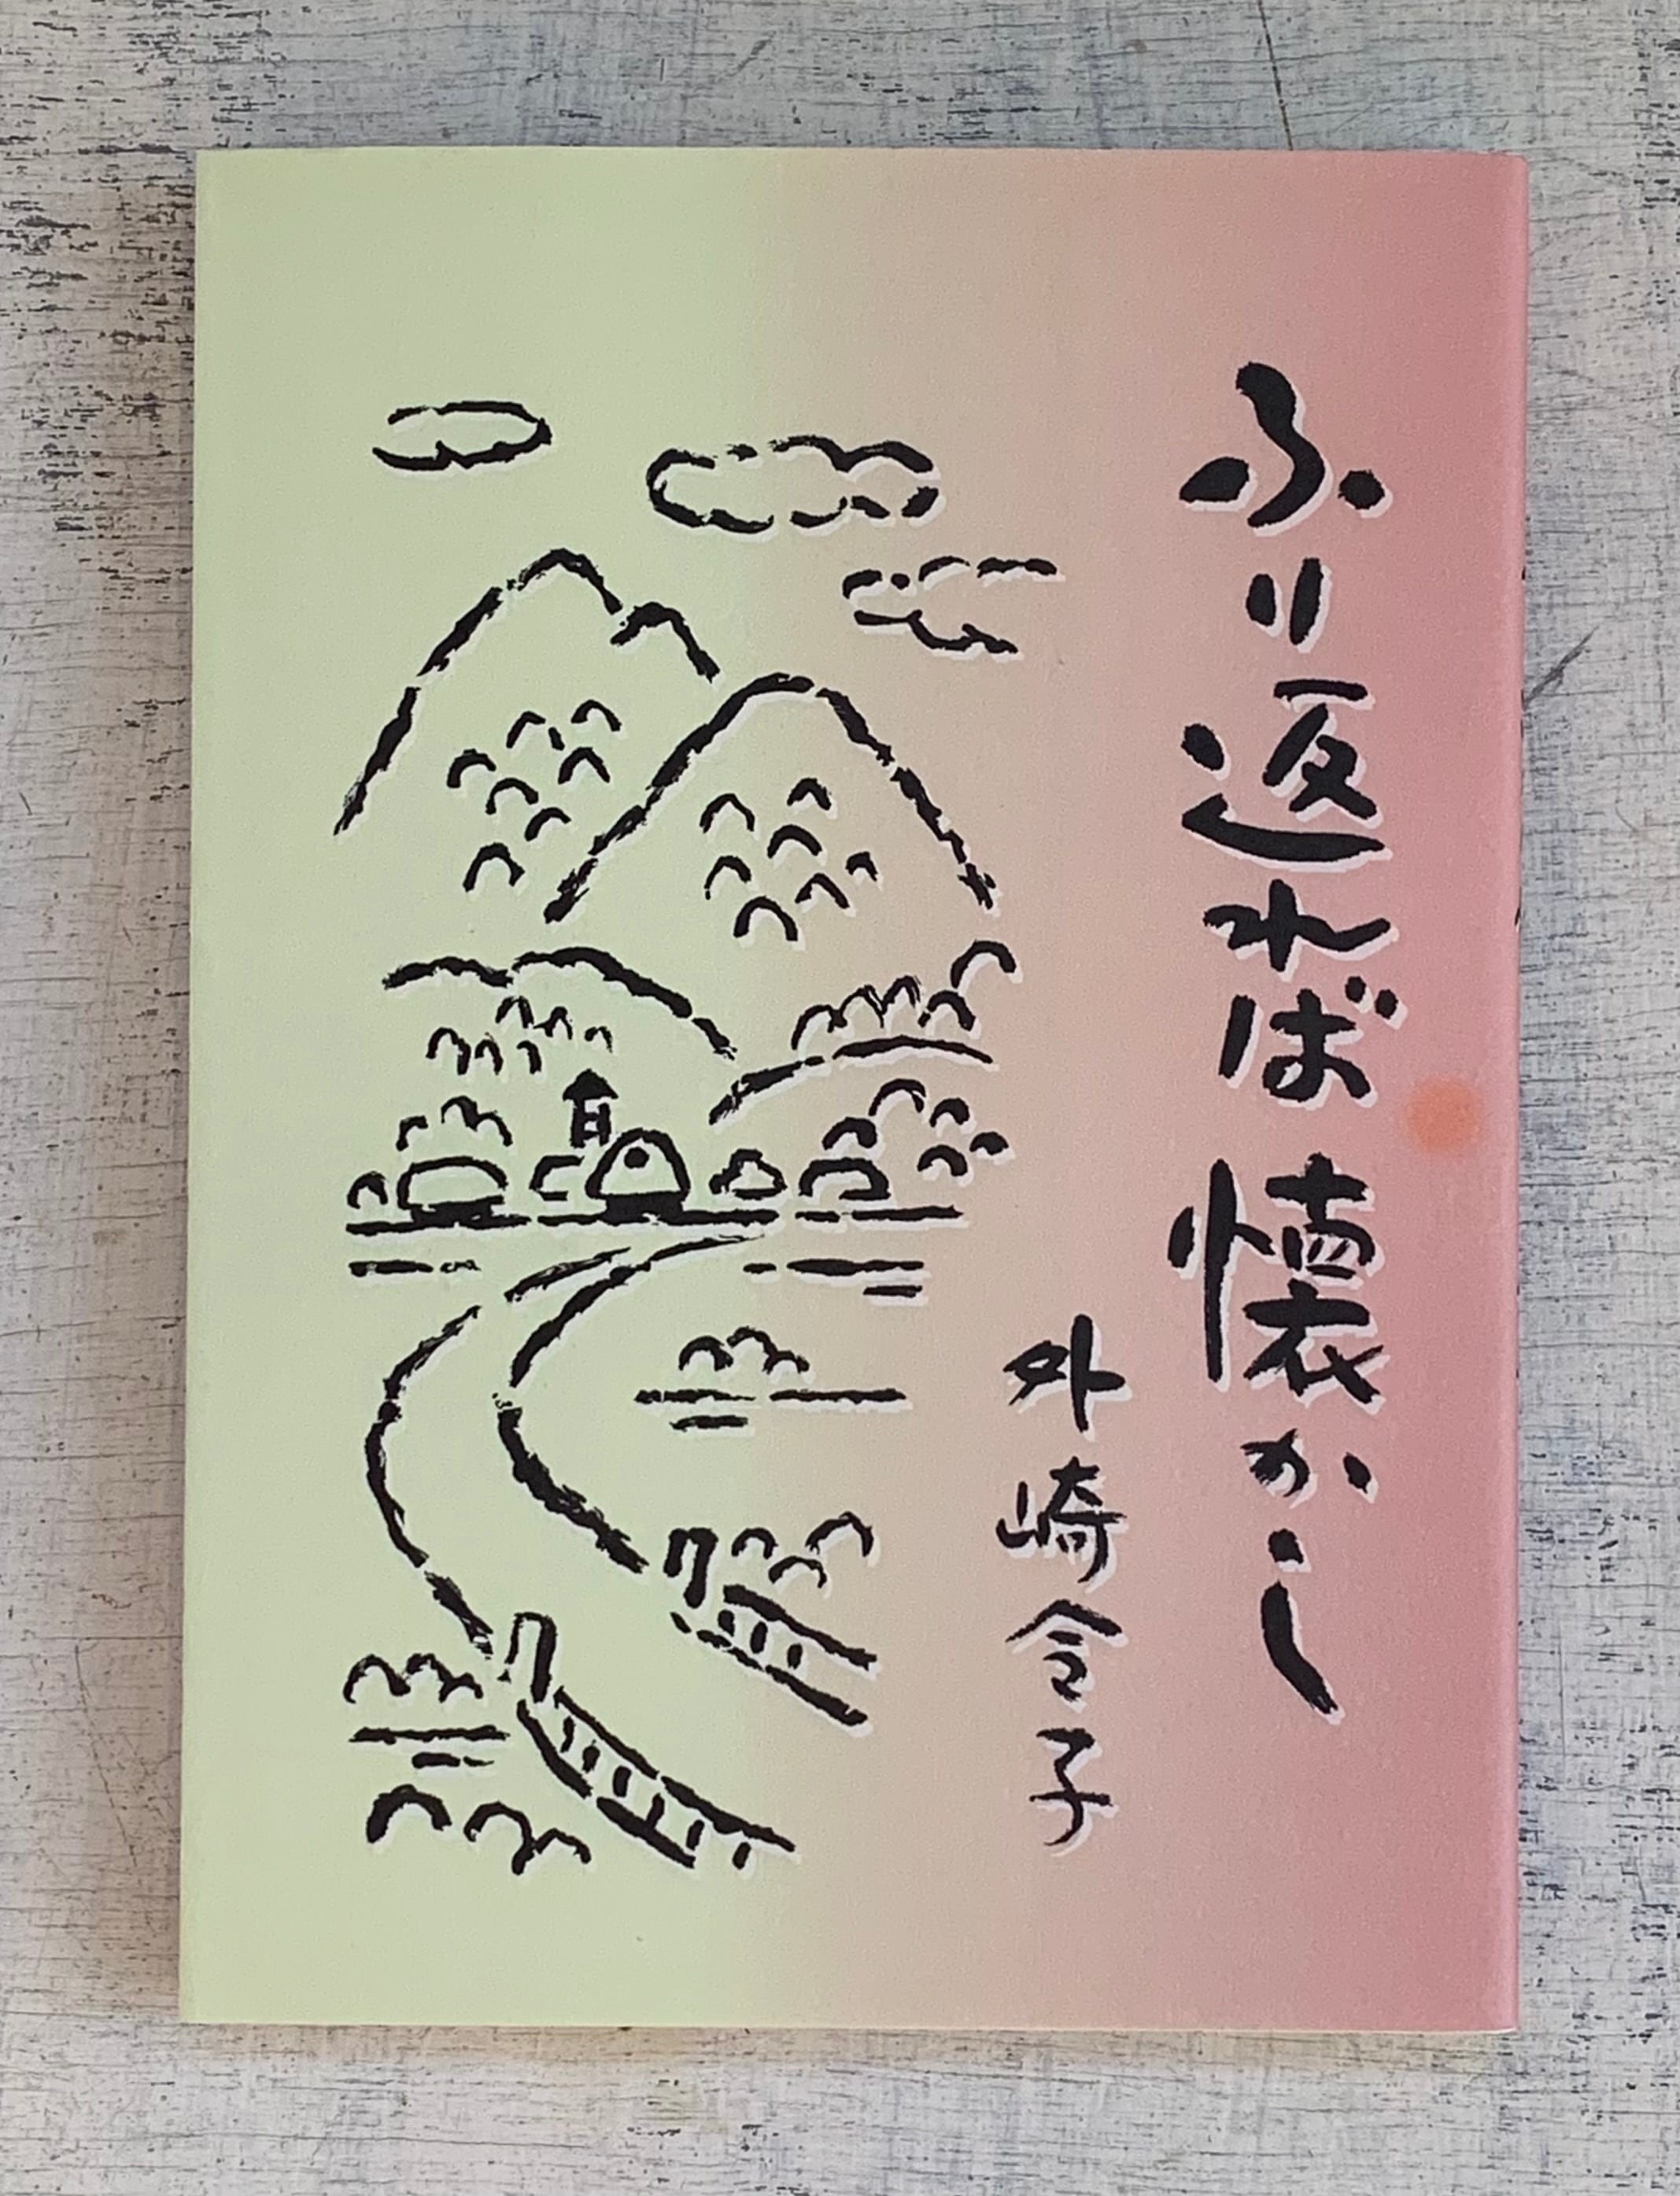 ふり返れば懐かし
外崎令子